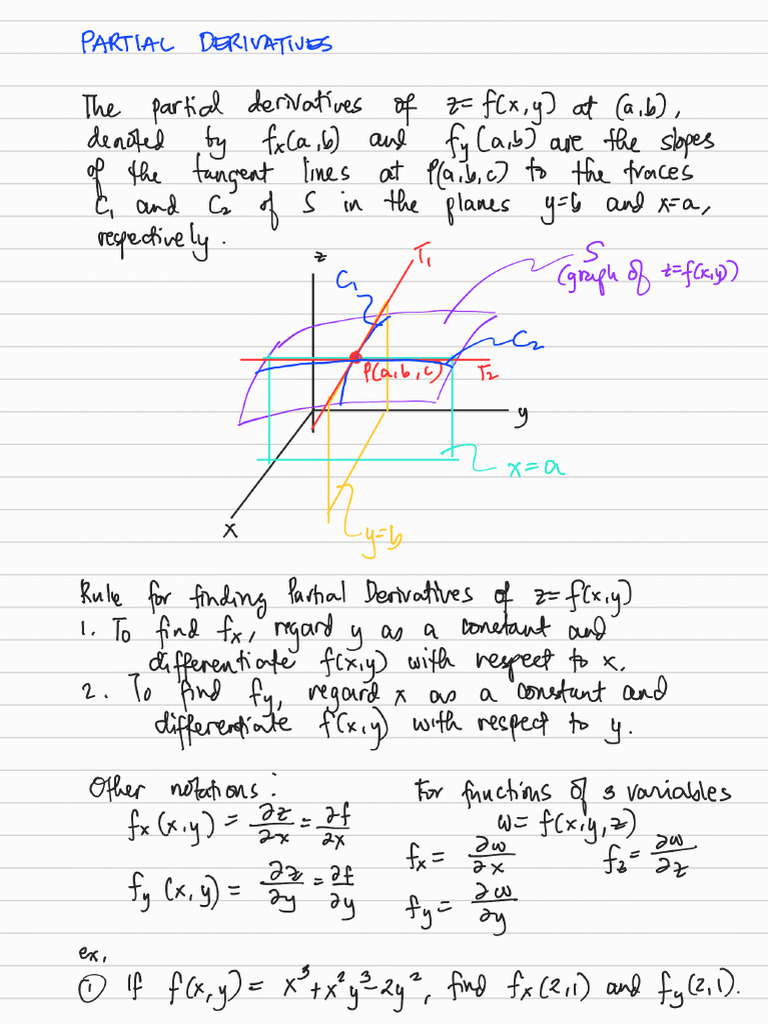 PARTIAL DERIVATIVES
The partial derivatives of z=f(x,y) at (a,b),
denoted by fx(a,b) and fy(a,b) are the slopes
of the tangent lines at P(a,b,c) to the traces
C₁ and C₂ of S in the planes y=b and x=a,
respectively.
z
T₁
S
(graph of z=f(x,y))
C₁
C₂
P(a,b,c)
T₂
y
x=a
x
y=b
Rule for finding Partial Derivatives of z=f(x,y)
1. To find fx, regard y as a constant and
differentiate f(x,y) with respect to x.
2. To find fy, regard x as a constant and
differentiate f(x,y) with respect to y.
Other notations:
fx(x,y) = ∂z/∂x = ∂f/∂x
fy(x,y) = ∂z/∂y = ∂f/∂y
For functions of 3 variables
w= f(x,y,z)
fx = ∂w/∂x
fz = ∂w/∂z
fy = ∂w/∂y
ex.
① If f(x,y) = x³+x²y³-2y², find fx(2,1) and fy(2,1).